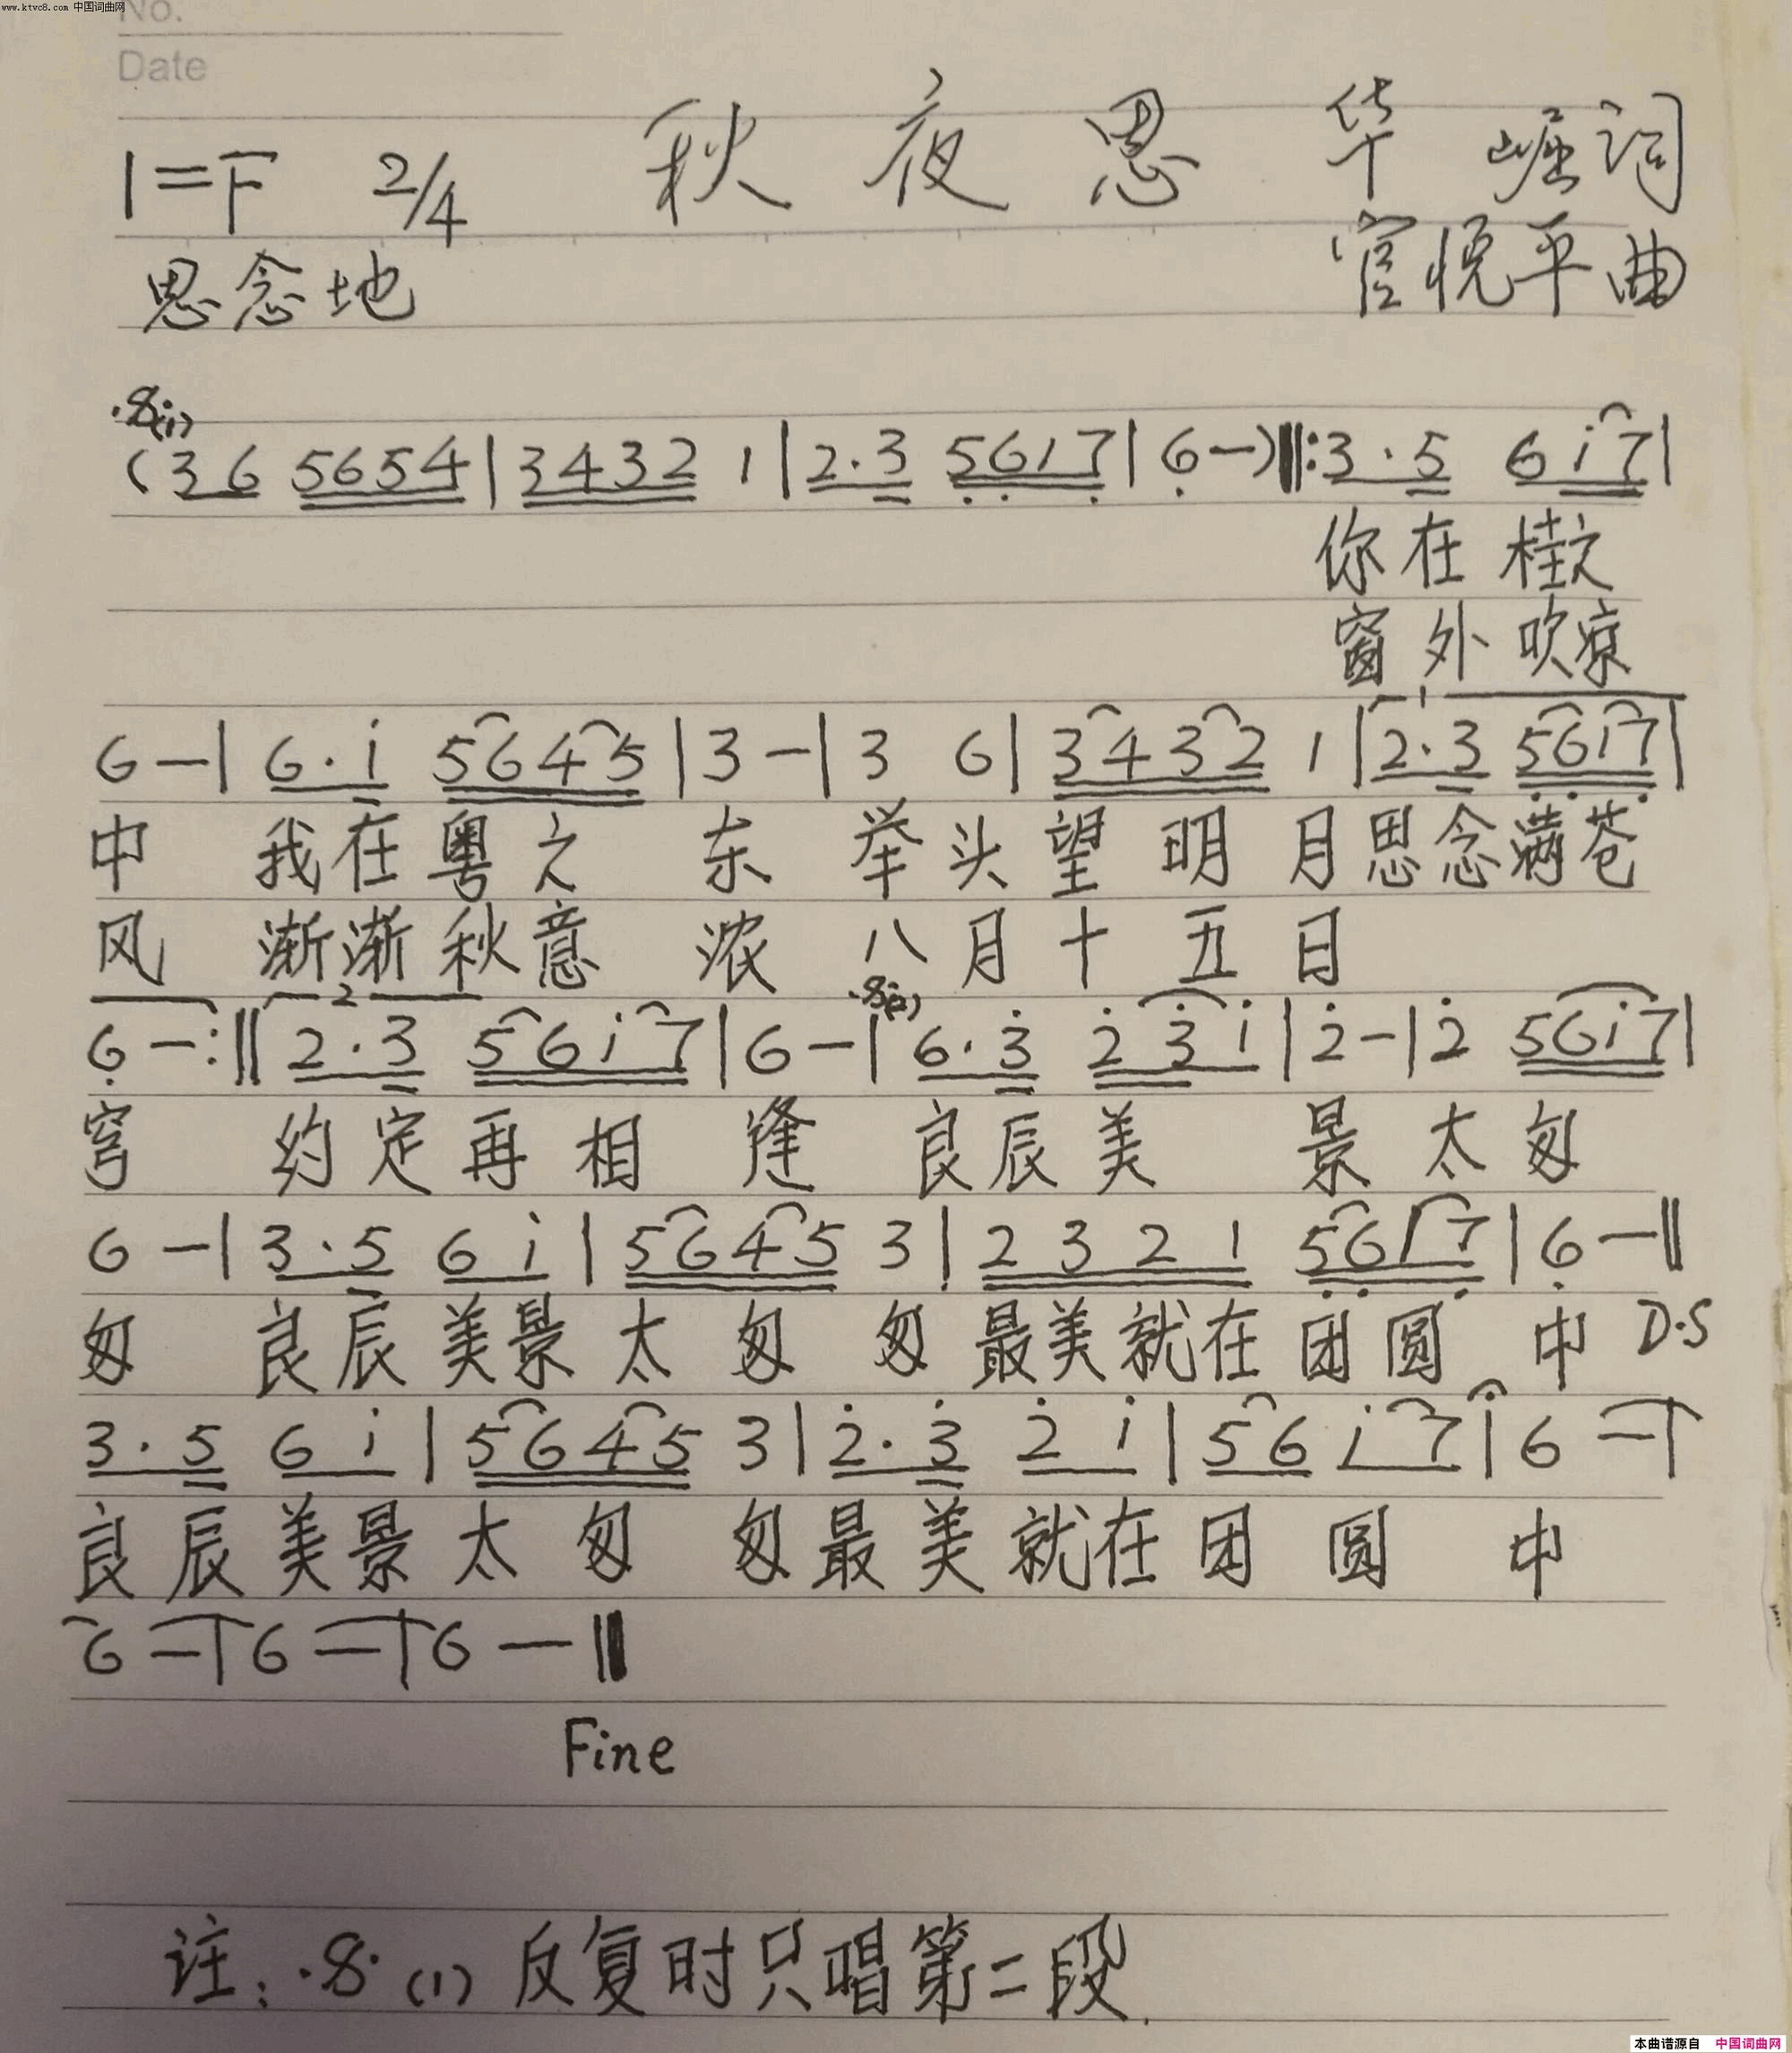 www.ktvc8.com 中国词曲网
No.
Date
1=F 2/4 秋夜思 华崛词
思念地 官悦平曲
𝄋(1)
(3 6 5654|3432 1|2·3 5617|6-)‖:3·5 6i7|
你在桂之
窗外吹凉
6-|6·i 5645|3-|3 6|3432 1|2·3 5617|
中 我在粤之 东 举头望明月思念满苍
风 渐渐秋意 浓 八月十五日
6-:‖2·3 56i7|6-|6·3 2 3 i|2-|2 56i7|
穹 约定再相 逢 良辰美 景太匆
6-|3·5 6 i|5645 3|2321 5617|6-‖
匆 良辰美景太匆 匆最美就在团圆 中 D.S
3·5 6 i|5645 3|2·3 2 i|56 i7|6-|
良辰美景太匆 匆最美就在团圆 中
6-|6-|6-‖
Fine
注:𝄋(1)反复时只唱第二段.
本曲谱源自 中国词曲网